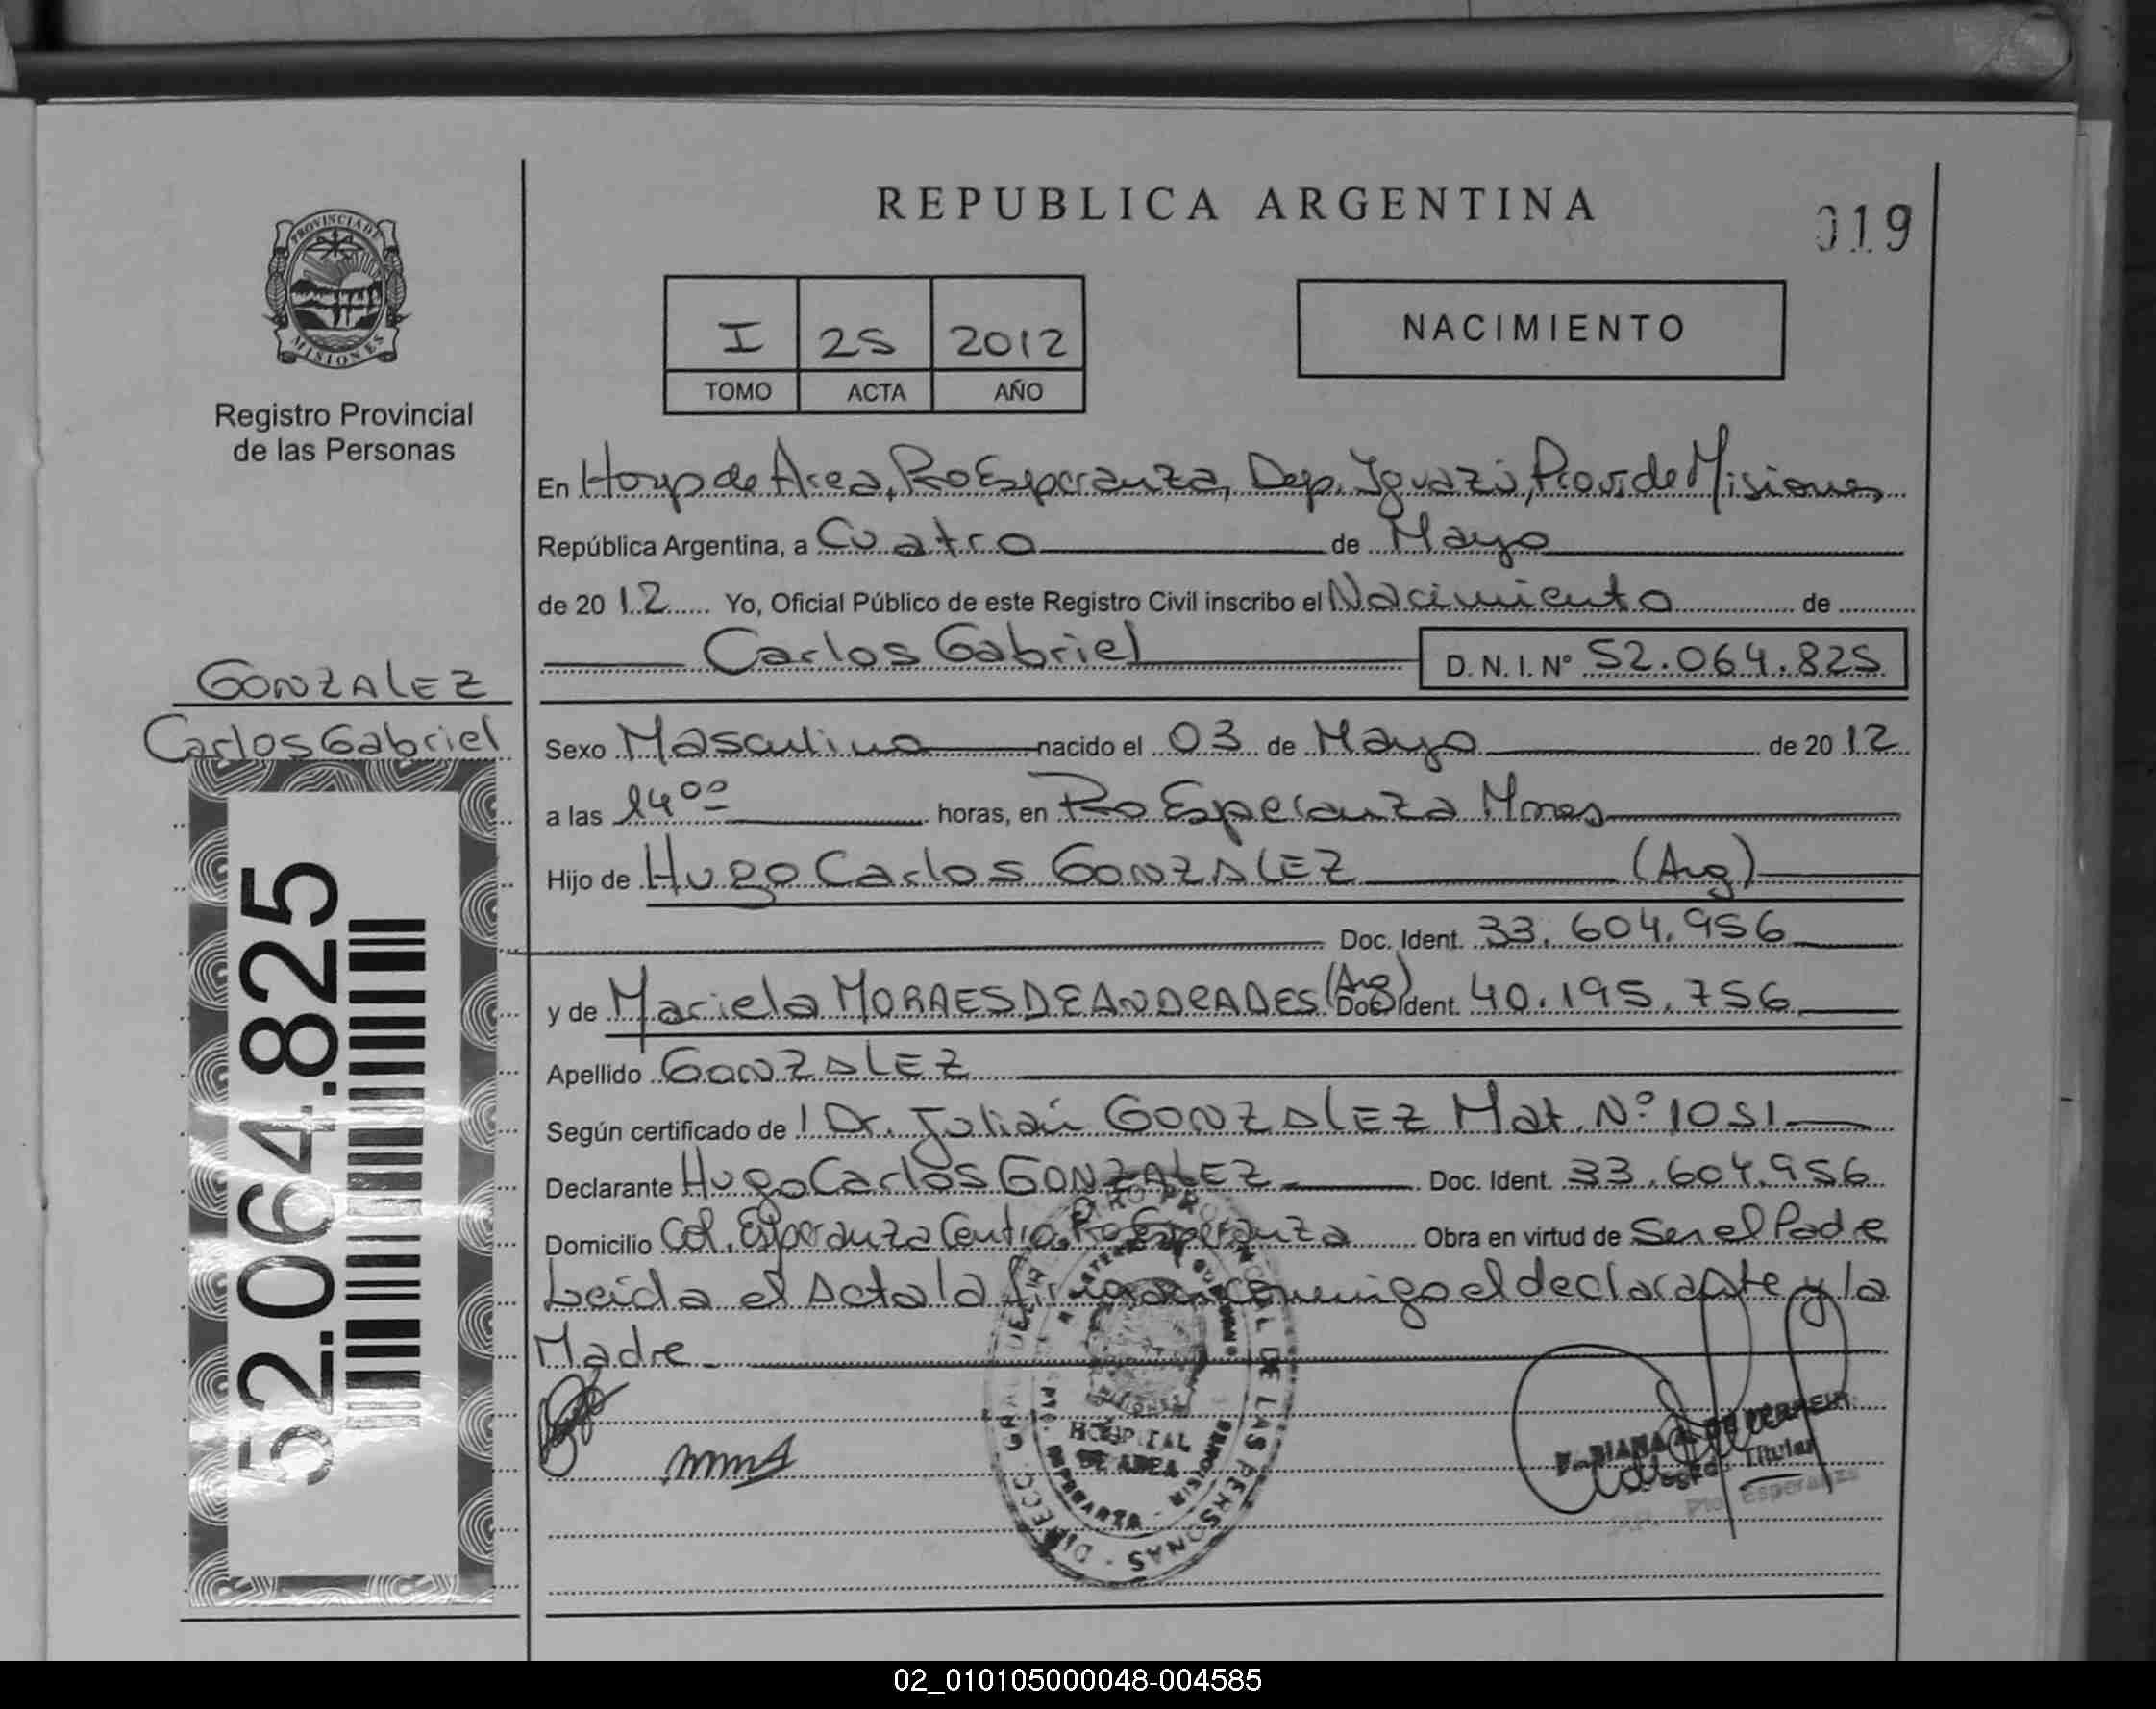 REPUBLICA ARGENTINA
019
PROVINCIA DE
MISIONES
Registro Provincial
de las Personas
I 25 2012
TOMO ACTA AÑO
NACIMIENTO
En Hosp de Area, Pto Esperanza, Dep. Iguazú, Prov. de Misiones
República Argentina, a Cuatro de Mayo
de 2012 Yo, Oficial Público de este Registro Civil inscribo el Nacimiento de
Carlos Gabriel D.N.I. Nº 52.064.825
GONZALEZ
Carlos Gabriel
52.064.825
Sexo Masculino nacido el 03 de Mayo de 2012
a las 14 00 horas, en Pto Esperanza Mnes
Hijo de Hugo Carlos GONZALEZ (Arg)
Doc. Ident. 33.604.956
y de Mariela MORAES DE ANDRADES (Arg) Doc. Ident. 40.195.756
Apellido GONZALEZ
Según certificado de l Dr. Julián GONZALEZ Mat. Nº 1051
Declarante Hugo Carlos GONZALEZ Doc. Ident. 33.604.956
Domicilio Col. Esperanza Centro, Pto Esperanza Obra en virtud de Ser el Padre
Leida el Acta la firman conmigo el declarante y la
Madre
HOSPITAL
DE AREA
Titular
Pto. Esperanza
02_010105000048-004585